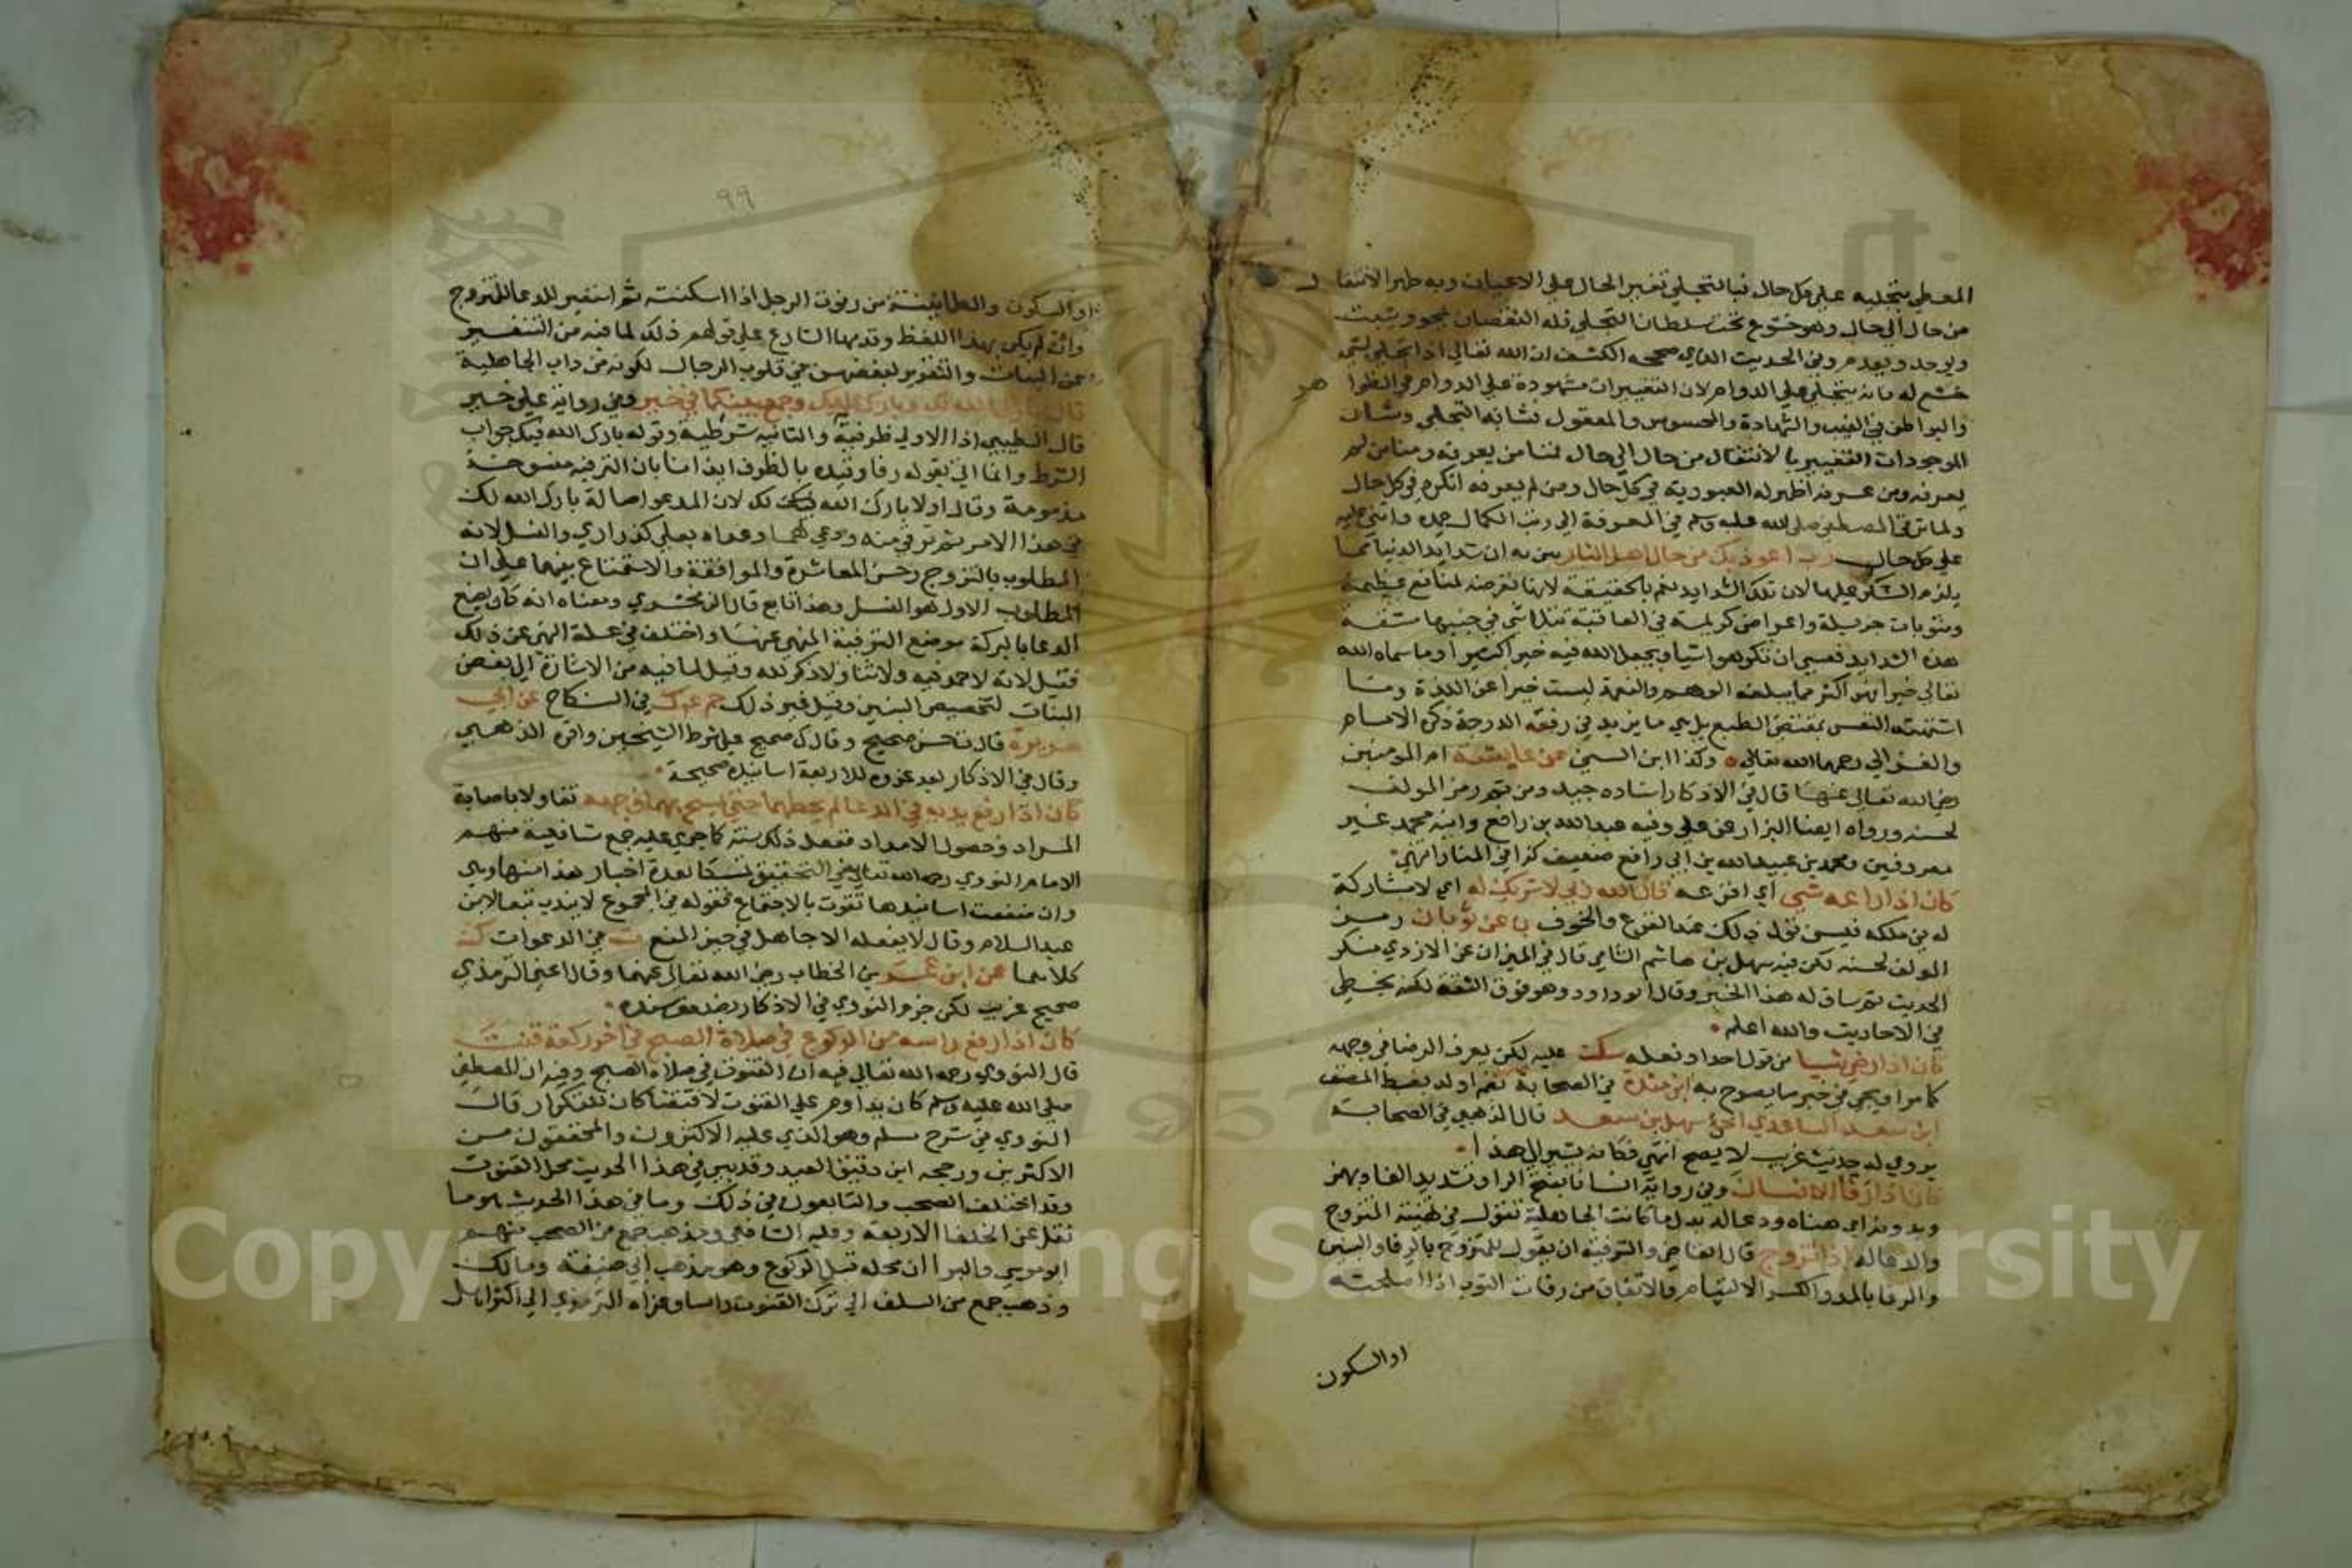 المعطي بتجليه على كل حال فبالتجلي تغير الحال على الاعيان وبه ظهر الانتقال
من حال الى حال وهو خشوع تحت سلطان التجلي فله النقصان يمحو ويثبت
ويوجد ويعدم وفي الحديث الذي صححه الكشف ان الله تعالى اذا تجلى لشي
خشع له فانه يتجلى على الدوام لان التغييرات مشهودة على الدوام في الظواهر
والبواطن في الغيب والشهادة والمحسوس والمعقول فشانه التجلي وشان
الموجودات التغيير بالانتقال من حال الى حال فمنا من يعرفه ومنا من لم
يعرفه ومن عرفه اظهر له العبودية في كل حال ومن لم يعرفه انكره في كل حال
ولما ترقى المصطفى صلى الله عليه وسلم في المعرفة الى رتب الكمال حمده واثنى عليه
على كل حال رب اعوذ بك من حال اهل النار بين به ان شدايد الدنيا مما
يلزم الشكر عليها لان تلك الشدايد نعم بالحقيقة لانها تعرضه لمنافع عظيمة
ومثوبات جزيلة واعواض كريمة في العاقبة تتلاشى في جنبها مشقة
هذه الشدايد فعسى ان تكرهوا شيا ويجعل الله فيه خيرا كثيرا وما سماه الله
تعالى خيرا فهو اكثر مما يبلغه الوهم والنعمة ليست خيرا عن اللذة وما
اشتهته النفس بمقتضى الطبع بل هي ما يزيد في رفعة الدرجة ذكره الامام
والغزالي رحمهما الله تعالى ه وكذا ابن السني عن عايشة ام المومنين
رضي الله تعالى عنها قال في الاذكار اسناده جيد ومن ثم رمز المولف
لحسنه ورواه ايضا البزار عن علي وفيه عبد الله بن رافع وابنه محمد غير
معروفين ومحمد بن عبيد الله بن ابي رافع ضعيف كذا في المنار انتهى
كان اذا راعه شي اي افزعه قال الله ربي لا شريك له اي لا مشاركة
له في ملكه فيسن قول ذلك عند الفزع والخوف ن عن ثوبان رمز
المولف لحسنه لكن فيه سهل بن هاشم الشامي قال في الميزان عن الازدي منكر
الحديث ثم ساق له هذا الخبر وقال ابو داود وهو فوق الثقة لكنه يخطي
في الاحاديث والله اعلم
كان اذا رضي شيا من قول احد او فعله سكت عليه لكن يعرف الرضا في وجهه
كما مر او يجي في خبر ما يصرح به ابن منده في الصحابة
ابن سعد الساعدي اخي سهل بن سعد قال الذهبي في الصحابة
يروى له حديث غريب لا يصح انتهى فكانه يشير الى هذا
كان اذا رفا الانسان وفي رواية انسانا بفتح الرا وتشديد الفا وبهمز
وبدونه اي هناه ودعا له بدل ما كانت الجاهلية تقول في تهنئة المتزوج
والدعا له اذا تزوج قال القاضي والترفية ان يقول للمتزوج بالرفا والبنين
والرفا بالمد والكسر الالتيام والاتفاق من رفات الثوب اذا اصلحته
او السكون
٩٩
او السكون والطمانينة من رفوت الرجل اذا اسكنته ثم استعير للدعا للمتزوج
وان لم يكن بهذا اللفظ وقدمها الشارع على قولهم ذلك لما فيه من التنفير
عن البنات والتقرير لبغضهن في قلوب الرجال لكونه من داب الجاهلية
قال بارك الله لك وبارك عليك وجمع بينكما في خير وفي رواية على خير
قال الطيبي اذا الاولى ظرفية والثانية شرطية وقوله بارك الله لك جواب
الشرط وانما اتى بقوله رفا وقيده بالظرف ايذانا بان الترفية منسوخة
مذمومة وقال اولا بارك الله لك لان المدعو اصالة بارك الله لك
في هذا الامر ثم ترقى منه ودعى لهما وعداه بعلى لان الذراري والنسل لانه
المطلوب بالتزوج وحسن المعاشرة والموافقة والاستمتاع بينهما على ان
المطلوب الاول هو النسل وهذا تابع قال الزمخشري ومعناه انه كان يضع
الدعا بالبركة موضع الترفية المنهي عنها واختلف في علة النهي عن ذلك
فقيل لانه لا حمد فيه ولا ثنا ولا ذكر لله وقيل لما فيه من الاشارة الى بغض
البنات لتخصيص البنين وقيل غير ذلك حم ع ك في النكاح عن ابي
هريرة قال ت حسن صحيح وقال ك صحيح على شرط الشيخين واقره الذهبي
وقال في الاذكار بعد عزوه للاربعة اسانيده صحيحة
كان اذا رفع يديه في الدعا لم يحطهما حتى يمسح بهما وجهه تفاولا باصابة
المراد وحصول الامداد ففعل ذلك سنة كما جرى عليه جمع شافعية منهم
الامام النووي رحمه الله تعالى في التحقيق تمسكا بعدة اخبار هذا منها وهي
وان ضعفت اسانيدها تقوت بالاجتماع فقوله في المجموع لا يندب تبعا لابن
عبد السلام وقال لا يفعله الا جاهل في حيز المنع ت في الدعوات ك
كلاهما عن ابن عمر بن الخطاب رضي الله تعالى عنهما وقال اعني الترمذي
صحيح غريب لكن جزم النووي في الاذكار بضعف سنده
كان اذا رفع راسه من الركوع في صلاة الصبح في اخر ركعة قنت
قال النووي رحمه الله تعالى فيه ان القنوت في صلاة الصبح وفيه ان المصطفى
صلى الله عليه وسلم كان يداوم على القنوت لاقتضا كان للتكرار قال
النووي في شرح مسلم وهو الذي عليه الاكثرون والمحققون من
الاكثرين ورجحه ابن دقيق العيد وقد بين في هذا الحديث محل القنوت
وقد اختلف الصحب والتابعون في ذلك وما في هذا الحديث هو ما
نقل عن الخلفا الاربعة وعليه الشافعي وذهب جمع من الصحب منهم
ابو موسى والبرا ان محله قبل الركوع وهو مذهب ابي حنيفة ومالك
وذهب جمع من السلف الى ترك القنوت راسا وعزاه الترمذي الى اكثر اهل
1957
Copyright © King Saud University